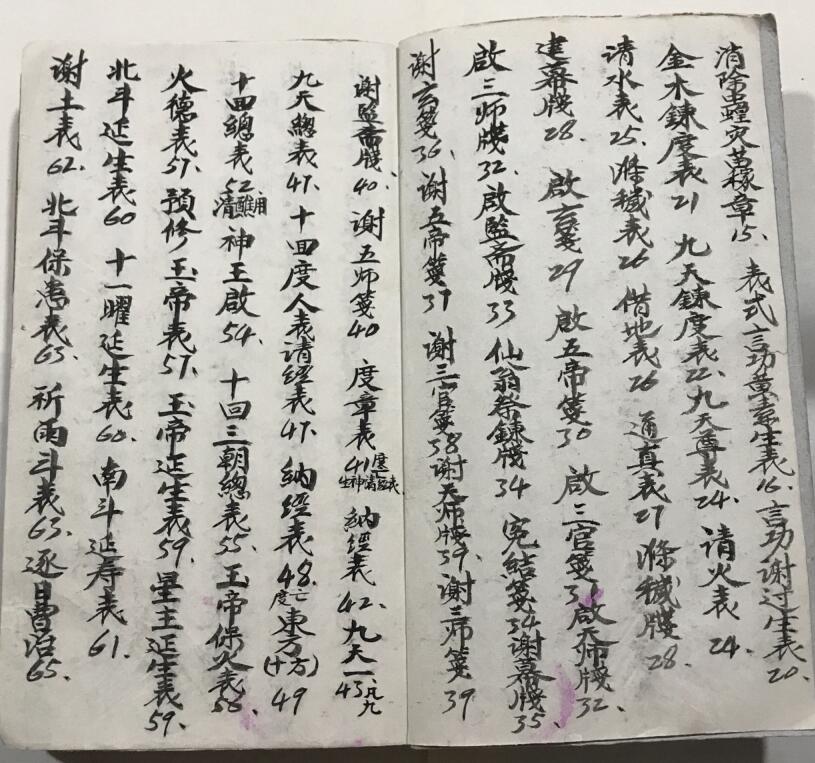 消除虫蝗灾苗稼章15、表式言功黄素生表16、言功谢过生表20、
金木鍊度表21 九天鍊度表22、九天尊表24、请火表24、
请水表25、滌穢表26 借地表26 通真表27 滌穢牋28、
建幕牋28、啟玄箋29 啟五帝箋30 啟三官箋31 啟天师牋32、
啟三师牋32、啟監斋牋33 仙翁祭鍊牋34 完結箋34 谢幕牋35、
谢玄箋36、谢五帝箋37 谢三官箋38 谢天师牋39、谢三师箋39
谢監斋牋40、谢五师箋40 度章表41 生神請經表 納經表42、九天一43、
九天總表47、十回度人表请經表47、納經表48、度亡東方(十方)49
十回總表52、清醮用 神王啟54、十回三朝總表55、玉帝保火表56、
火德表57、預修玉帝表57、玉帝延生表59、星主延生表59、
北斗延生表60 十一曜延生表60、南斗延寿表61、
谢土表62、北斗保患表63、祈雨斗表63、逐日曹治65、